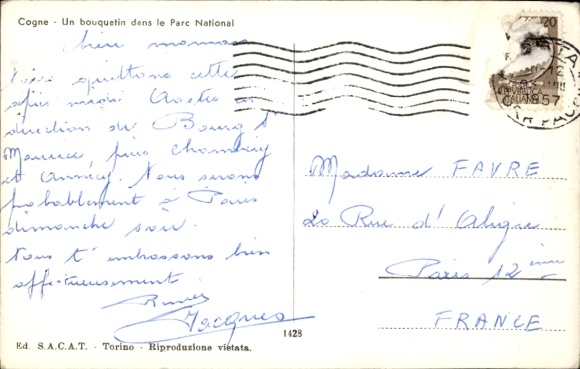 Cogne - Un bouquetin dans le Parc National
Chère maman
Nous quittons cette
après midi Aosta en
direction de Bourg St
Maurice, puis Chambéry
et Annecy. Nous serons
probablement à Paris
dimanche soir.
Nous t'embrassons bien
affectueusement
Jacques
Madame FAVRE
Rue d'Aligre
Paris 12ème
FRANCE
1428
Ed. S.A.C.A.T. - Torino - Riproduzione vietata.
20
12
1957